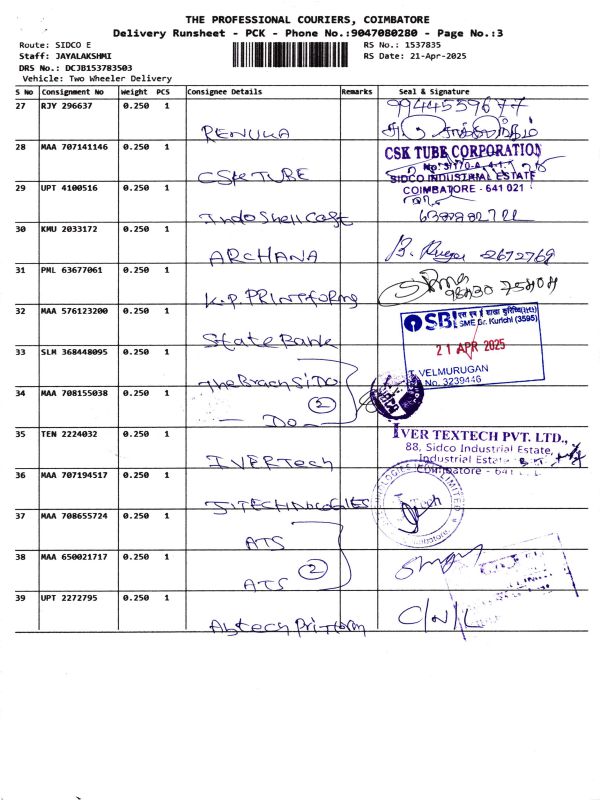 THE PROFESSIONAL COURIERS, COIMBATORE
Delivery Runsheet - PCK - Phone No.:9047080280 - Page No.:3
Route: SIDCO E
RS No.: 1537835
Staff: JAYALAKSHMI
RS Date: 21-Apr-2025
DRS No.: DCJB153783503
Vehicle: Two Wheeler Delivery
S No Consignment No Weight PCS Consignee Details Remarks Seal & Signature
27 RJY 296637 0.250 1
9944559677
RENUKA
28 MAA 707141146 0.250 1
CSK TUBE CORPORATION
CSK TUBE
SIDCO INDUSTRIAL ESTATE
29 UPT 4100516 0.250 1
COIMBATORE - 641 021
IndoShell Cast
30 KMU 2033172 0.250 1
ARCHANA
2672769
31 PML 63677061 0.250 1
K.P. PRINTForms
32 MAA 576123200 0.250 1
SBI
SME Br. Kurichi (3595)
State Bank
21 APR 2025
33 SLM 368448095 0.250 1
VELMURUGAN
No. 3239446
34 MAA 708155038 0.250 1
2
Do
35 TEN 2224032 0.250 1
IVER TEXTECH PVT. LTD.,
88, Sidco Industrial Estate,
Industrial Estate
IVERTech
Coimbatore - 641
36 MAA 707194517 0.250 1
JITECHNOLOGIES
37 MAA 708655724 0.250 1
ATS
38 MAA 650021717 0.250 1
2
ATS
39 UPT 2272795 0.250 1
C/N/L
Abtech Printform